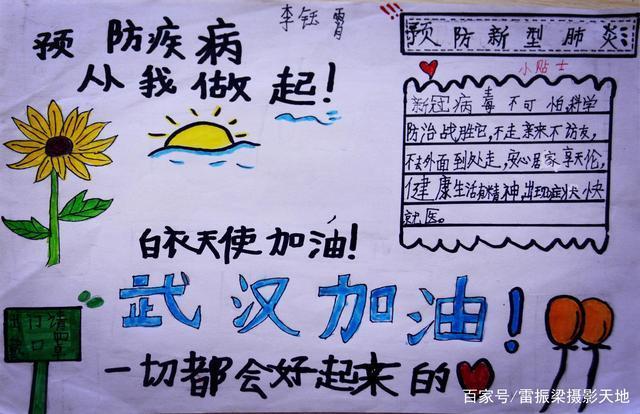 李钰霄
预防疾病
从我做起!
预防新型肺炎
小贴士
新冠病毒不可怕,科学
防治战胜它,不走亲来不访友,
不去外面到处走,安心居家享天伦,
健康生活有精神,出现症状快
就医。
白衣天使加油!
武汉加油!
一切都会好起来的
出行请
戴口罩
百家号/雷振梁摄影天地